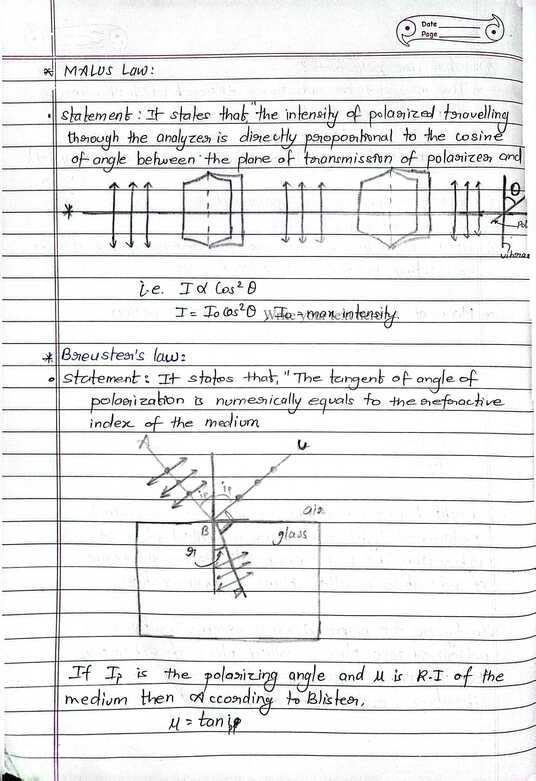 Date
Page
* MALUS Law:
• Statement: It states that, "the intensity of polarized travelling
through the analyzer is directly proportional to the cosine
of angle between the plane of transmission of polarizer and
*
θ
i.e. I α Cos²θ
I = I₀ Cos²θ I₀ = max intensity.
* Breuster's law:
• Statement: It states that, "The tangent of angle of
polarization is numerically equals to the refractive
index of the medium
A
ip ip
air
B
glass
r
If Ip is the polarizing angle and μ is R.I of the
medium then According to Blister,
μ = tan ip